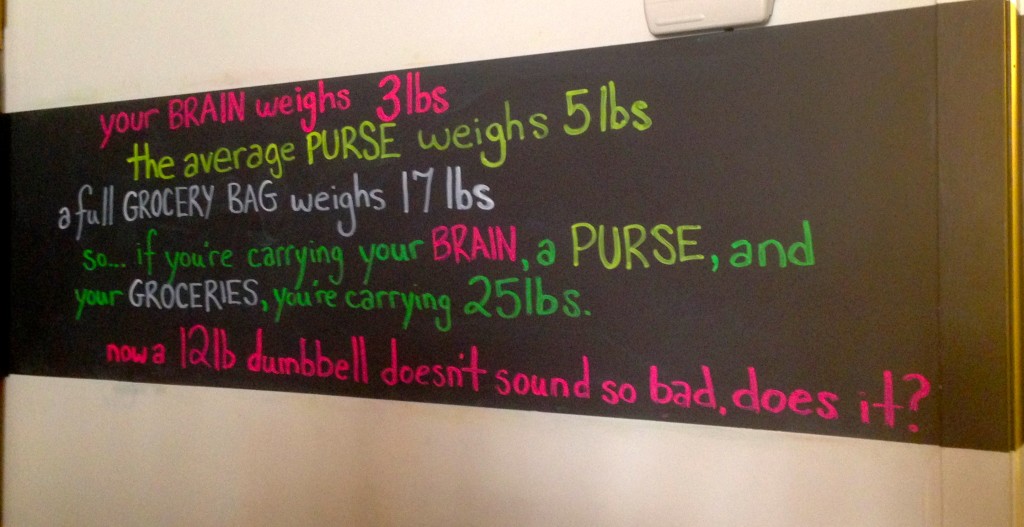 your BRAIN weighs 3lbs
the average PURSE weighs 5lbs
a full GROCERY BAG weighs 17 lbs
so... if you're carrying your BRAIN, a PURSE, and
your GROCERIES, you're carrying 25lbs.
now a 12lb dumbbell doesn't sound so bad, does it?